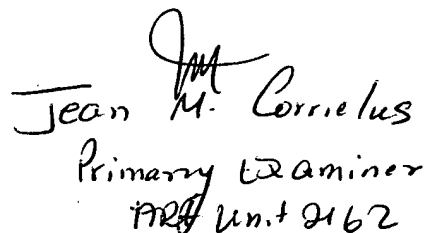 Jean M. Corrielus
Primary Examiner
Art Unit 2162